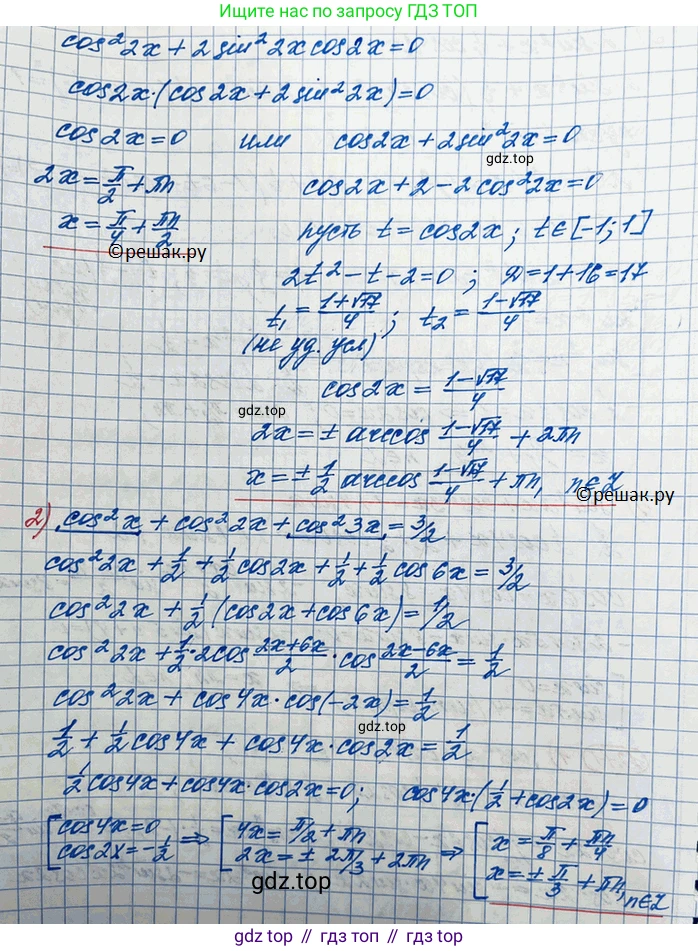 Ищите нас по запросу ГДЗ ТОП
cos²2x + 2 sin²2x cos2x = 0
cos2x·(cos2x + 2 sin²2x) = 0
cos2x = 0 или cos2x + 2 sin²2x = 0
гдз top
2x = π/2 + πn cos2x + 2 - 2cos²2x = 0
x = π/4 + πn/2 пусть t = cos2x; t ∈ [-1; 1]
©решак.ру
2t² - t - 2 = 0; Д = 1 + 16 = 17
t₁ = (1+√17)/4; t₂ = (1-√17)/4
(не уд. усл)
cos2x = (1-√17)/4
гдз top
2x = ± arccos (1-√17)/4 + 2πn
x = ± 1/2 arccos (1-√17)/4 + πn, n∈Z
©решак.ру
2) cos²x + cos²2x + cos²3x = 3/2
cos²2x + 1/2 + 1/2 cos2x + 1/2 + 1/2 cos6x = 3/2
cos²2x + 1/2 (cos2x + cos6x) = 1/2
cos²2x + 1/2·2cos (2x+6x)/2 · cos (2x-6x)/2 = 1/2
cos²2x + cos4x·cos(-2x) = 1/2
гдз top
1/2 + 1/2 cos4x + cos4x·cos2x = 1/2
1/2 cos4x + cos4x·cos2x = 0; cos4x·(1/2 + cos2x) = 0
[cos4x = 0 ⇒ [4x = π/2 + πn ⇒ [x = π/8 + πn/4
cos2x = -1/2 2x = ± 2π/3 + 2πn x = ± π/3 + πn, n∈Z
гдз top
gdz.top // гдз.топ // gdz.top